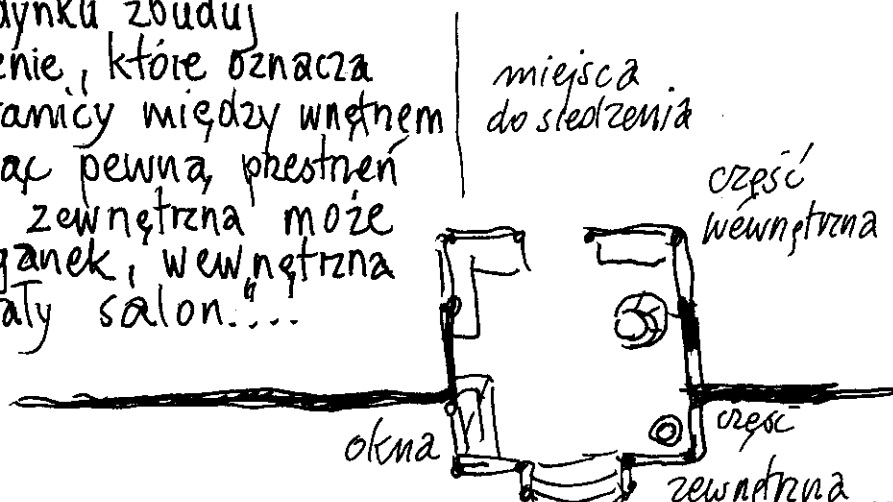 dynku zbuduj
enie, które oznacza
ranicy między wnętrzem
ąc pewną przestrzeń
zewnętrzna może
ganek, wewnętrzna
ały salon"....
miejsca
do siedzenia
część
wewnętrzna
okna
część
zewnętrzna